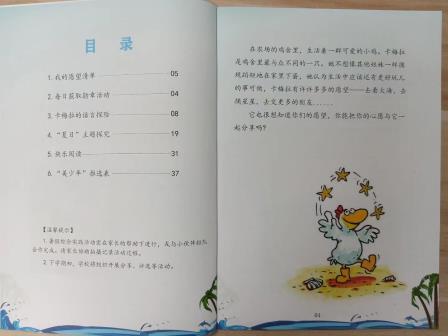 目 录
1. 我的愿望清单 05
2. 每日获取勋章活动 04
3. 卡梅拉的语言探险 08
4. “夏日”主题探究 19
5. 快乐阅读 31
6. “美少年”推选表 37
【温馨提示】
1. 暑假综合实践活动需在家长的帮助下进行，或与小伙伴组队
合作完成，请家长协助拍摄记录活动过程。
2. 下学期初，学校将组织开展分享、评选等活动。
在农场的鸡舍里，生活着一群可爱的小鸡，卡梅拉
是鸡舍里最与众不同的一只，她不想像其他姐妹一样循
规蹈矩地在家里下蛋，她认为生活中应该还有更好玩儿
的事可做，卡梅拉有许许多多的愿望——去看大海，去
摘星星，去交更多的朋友……
它也很想知道你们的愿望，你能把你的心愿与它一
起分享吗？
01